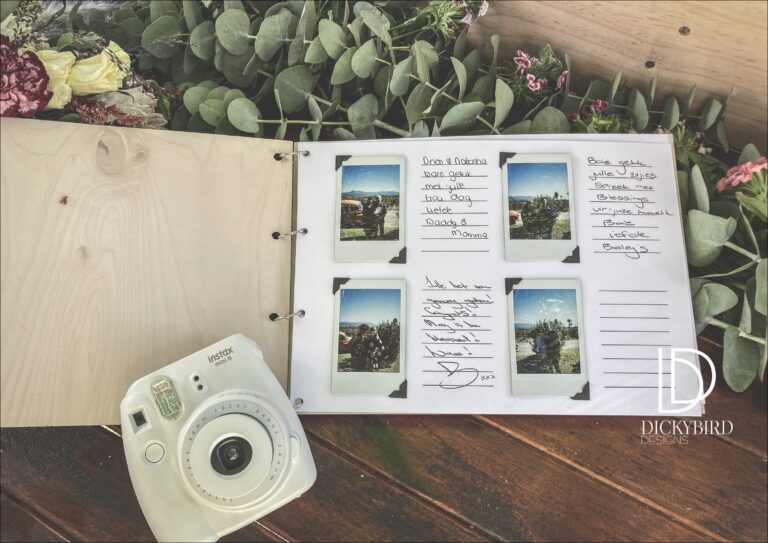 Drien & Natasha
baie geluk
met julle
trou dag
liefde
Daddy &
Mamma
Baie geluk
julle 2tjies
Spreek net
Blessings
vir julle
Baie
liefde
Bailey's
Julle het
Congrats!
May it be
blessed!
Love!
xxx
instax
mini 9
DICKYBIRD
DESIGNS